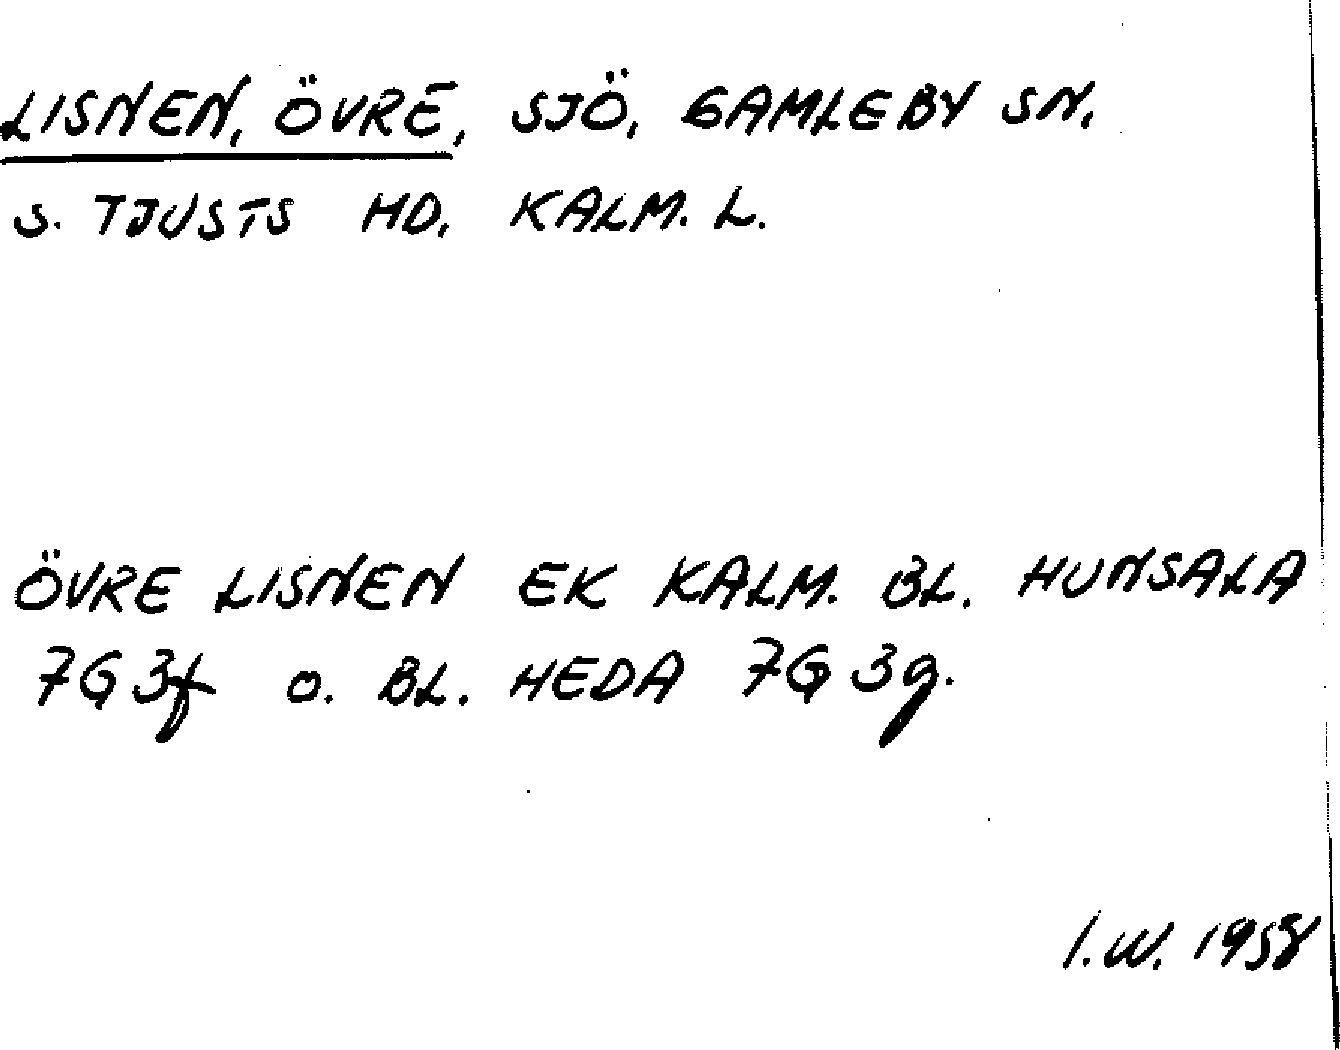 LISNEN, ÖVRE, SJÖ, GAMLEBY SN.
S. TJUSTS HD. KALM. L.
ÖVRE LISNEN EK KALM. BL. HUNSALA
7G3f O. BL. HEDA 7G3g.
I.W. 1958